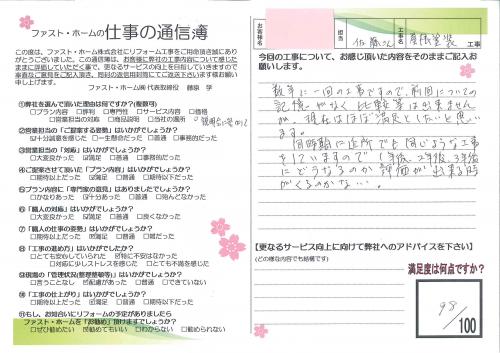 ファスト・ホームの仕事の通信簿
この度は、ファスト・ホーム株式会社にリフォーム工事をご用命頂き誠にあり
がとうございました。この通信簿は、お客様に弊社の工事内容について感じた
ままに評価していただく事で、更なるサービスの向上を目指していきますので
率直なご意見をご記入頂き、同封の返信用封筒にてご送下さいます様お願い
申し上げます。
ファスト・ホーム㈱代表取締役 藤原 学
①弊社を選んで頂いた理由は何ですか?(複数可)
□プラン内容 □評判 □専門性 □サービス内容 □価格
□営業担当の対応 □商品説明 □当社の場所
②営業担当の「ご提案する姿勢」はいかがでしょうか?
☑十分誠意を感じた □一生懸命だった □普通 □事務的だった
③営業担当の「対応」はいかがでしょうか?
□大変良かった ☑満足 □普通 □事務的だった
④ご提案させて頂いた「プラン内容」はいかがでしょうか?
□期待以上だった ☑満足 □普通 □期待以下だった
⑤プラン内容に「専門家の意見」はありましたか?
□かなりあった ☑十分あった □普通 □殆んどなかった
⑥「職人の対応」はいかがでしょうか?
□大変良かった ☑満足 □普通 □良くなかった
⑦「職人の仕事の姿勢」はいかがでしょうか?
□期待以上だった ☑満足 □普通 □雑だった
⑧「工事の進め方」はいかがでしたか?
□とても安心していられた ☑特に不安はなかった
□対応に少しストレスを感じた □とても不満を感じた
⑨現場の「管理状況(整理整頓等)」はいかがでしたか?
□言うことなし ☑配慮があった □普通 □できていない
⑩「工事の仕上がり」はいかがでしょうか?
□期待以上だった ☑満足 □普通 □期待以下だった
⑪もし、お知合いにリフォームの予定がありましたら
ファスト・ホームを「お勧め」頂けますでしょうか?
□ぜひ勧めたい ☑勧めてもいい □わからない □勧められない
お客様名
担当
佐藤さん
工事名
屋根塗装
工事
今回の工事について、お感じ頂いた内容をそのままご記入お
願いします。
数年に一回の工事ですので、前回についての
記憶がなく比較等は出来ません
が、現在はほぼ満足としたいと思い
ます。
同時期に近所でも同じような工事
をしていますので1年後、2年後、3年後
にどうなるのか評価が出来る時
がくるのかな…。
【更なるサービス向上に向けて弊社へのアドバイスを下さい】
(どの様な内容でも結構です)
満足度は何点ですか?
98
/100